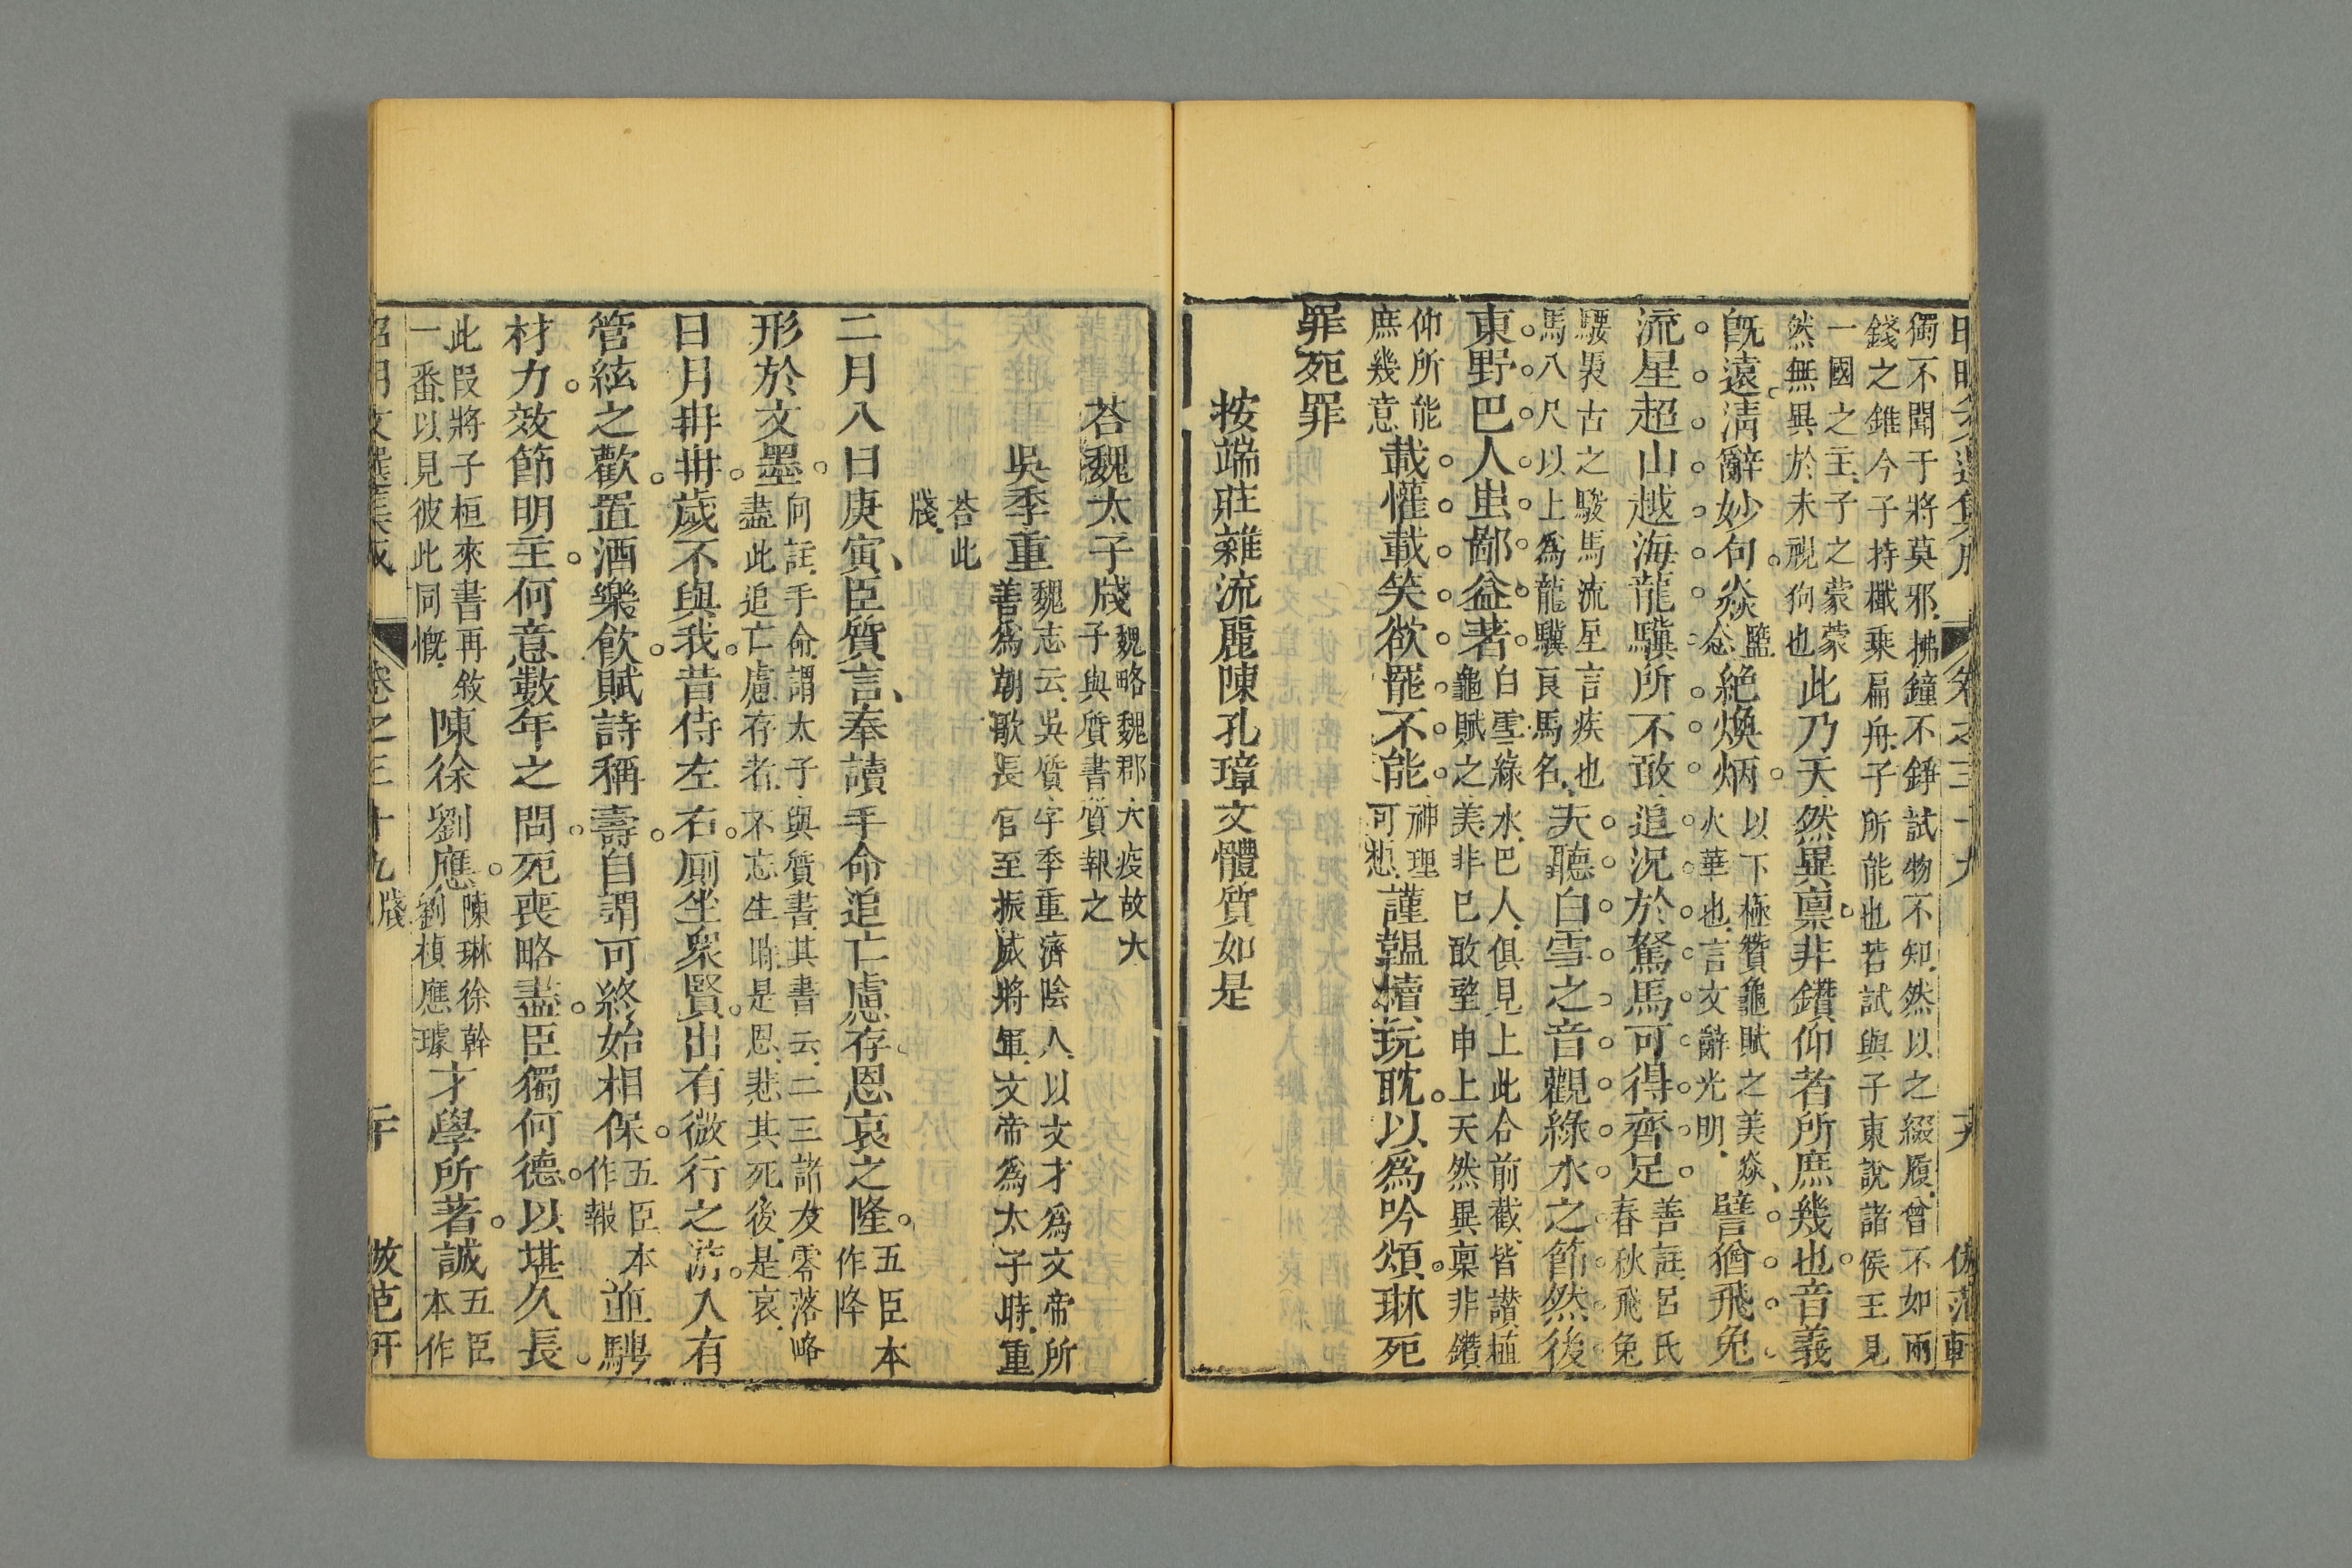 昭明文選集成 卷之三十九 倣范軒
獨不聞于將莫邪拂鐘不錚試物不知然以之綴履曾不如兩
錢之錐今子持檝乘扁舟子所能也若試與子東說諸侯王見
一國之主子之蒙蒙
然無異於未視狗也
此乃天然異禀非鑽仰者所庶幾也音義
既遠淸辭妙句焱
鹽
念
絶煥炳
以下極贊龜賦之美焱
火華也言文辭光明
譬猶飛兔
流星超山越海龍驥所不敢追况於駑馬可得齊足
善註呂氏
春秋飛兔
騕褭古之駿馬流星言疾也
馬八尺以上爲龍驥良馬名
夫聽白雪之音觀綠水之節然後
東野巴人蚩鄙益著
白雪綠水巴人俱見上此合前截皆讃植
龜賦之美非巳敢望申上天然異稟非鑽
仰所能
庶幾意
載懽載笑欲罷不能
神理
可想
謹韞櫝玩耽以爲吟頌琳死
罪死罪
按端莊雜流麗陳孔璋文體質如是
荅魏太子牋
魏略魏郡大疫故太
子與質書質報之
吳季重
魏志云吳質字季重濟陰人以文才爲文帝所
善爲朝歌長官至振威將軍文帝爲太子時重
荅此
牋
二月八日庚寅臣質言奉讀手命追亡慮存恩哀之隆
五臣本
作降
形於文墨
向註手命謂太子與質書其書云二三諸友零落略
盡此追亡慮存者不忘生時是恩悲其死後是哀
日月冉冉歲不與我昔侍左右厠坐衆賢出有微行之游入有
管絃之歡置酒樂飮賦詩稱壽自謂可終始相保
五臣本
作報
並騁
材力效節明主何意數年之間死喪略盡臣獨何德以堪久長
此叚將子桓來書再敘
一番以見彼此同慨
陳徐劉應
陳琳徐幹
劉楨應璩
才學所著誠
五臣
本作
昭明文選集成 卷之三十九 牋 倣范軒